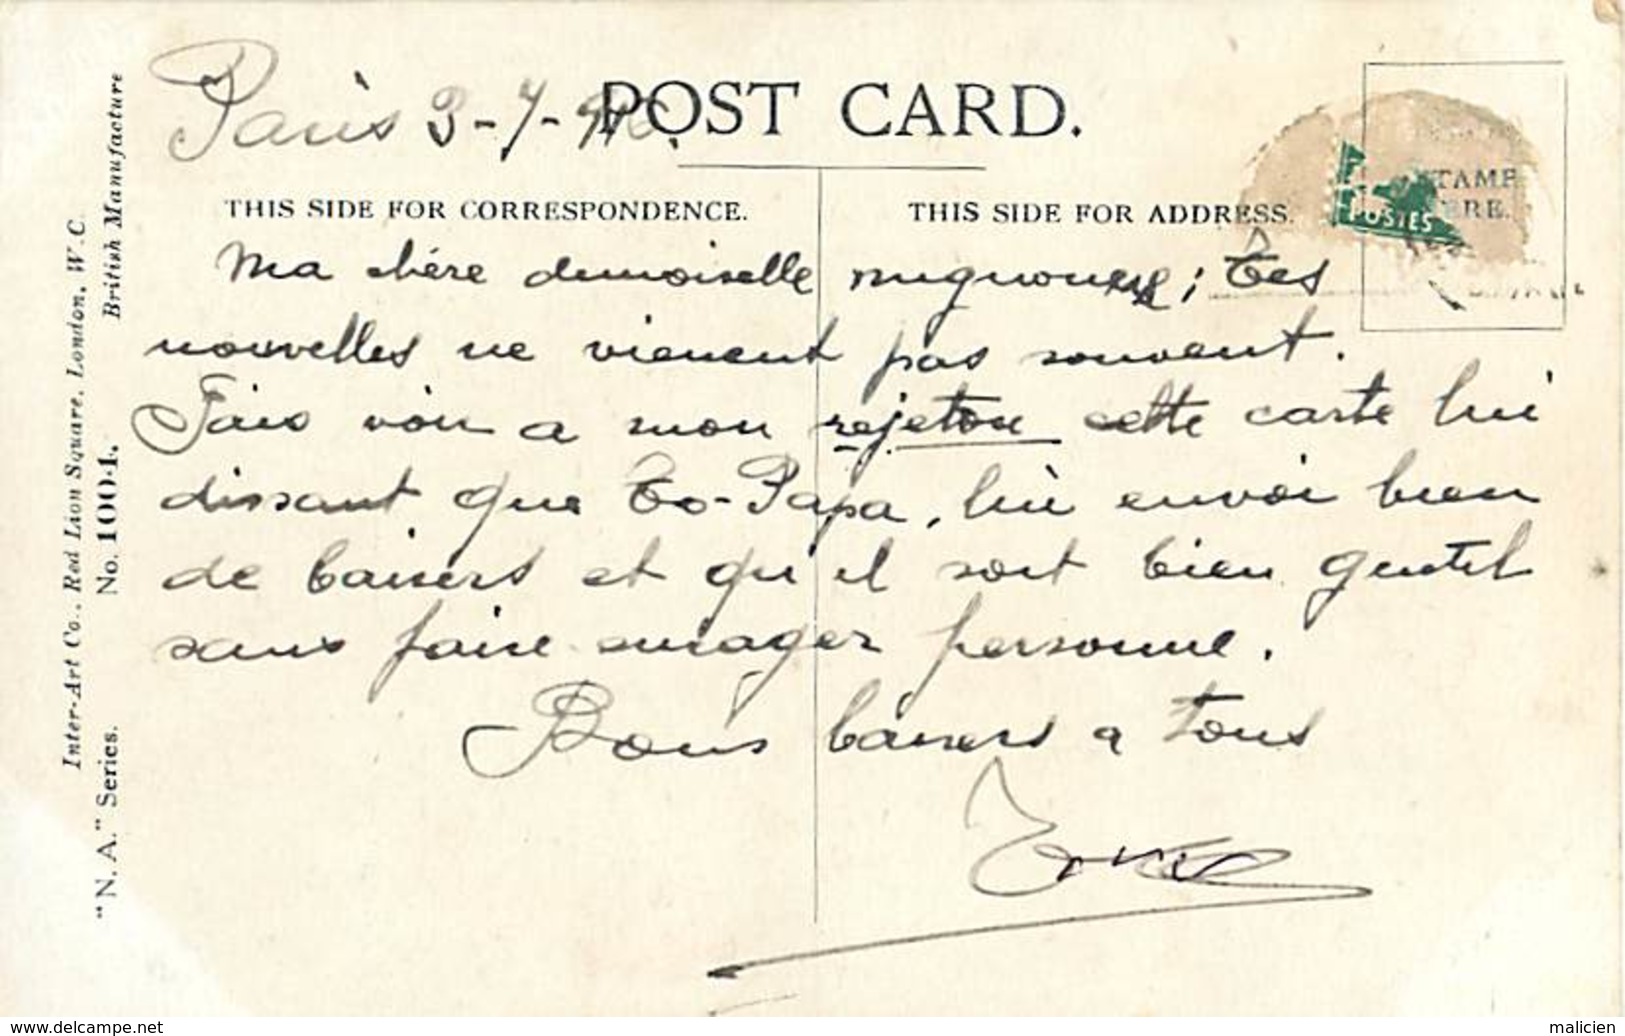 Paris 3-7-
POST CARD.
THIS SIDE FOR CORRESPONDENCE.
THIS SIDE FOR ADDRESS.
STAMP
HERE.
POSTES
Ma chére demoiselle mignonne ; Tes
nouvelles ne vienent pas souvent.
Fais voir a mon rejeton cette carte lui
dissant que To-Papa, lui envoi bien
de baisers et qu'il soit bien gentil
sans faire enrager personne.
Bons baisers a tous
Inter-Art Co., Red Lion Square, London, W.C.
British Manufacture
"N. A." Series. No. 1004.
www.delcampe.net
malicien